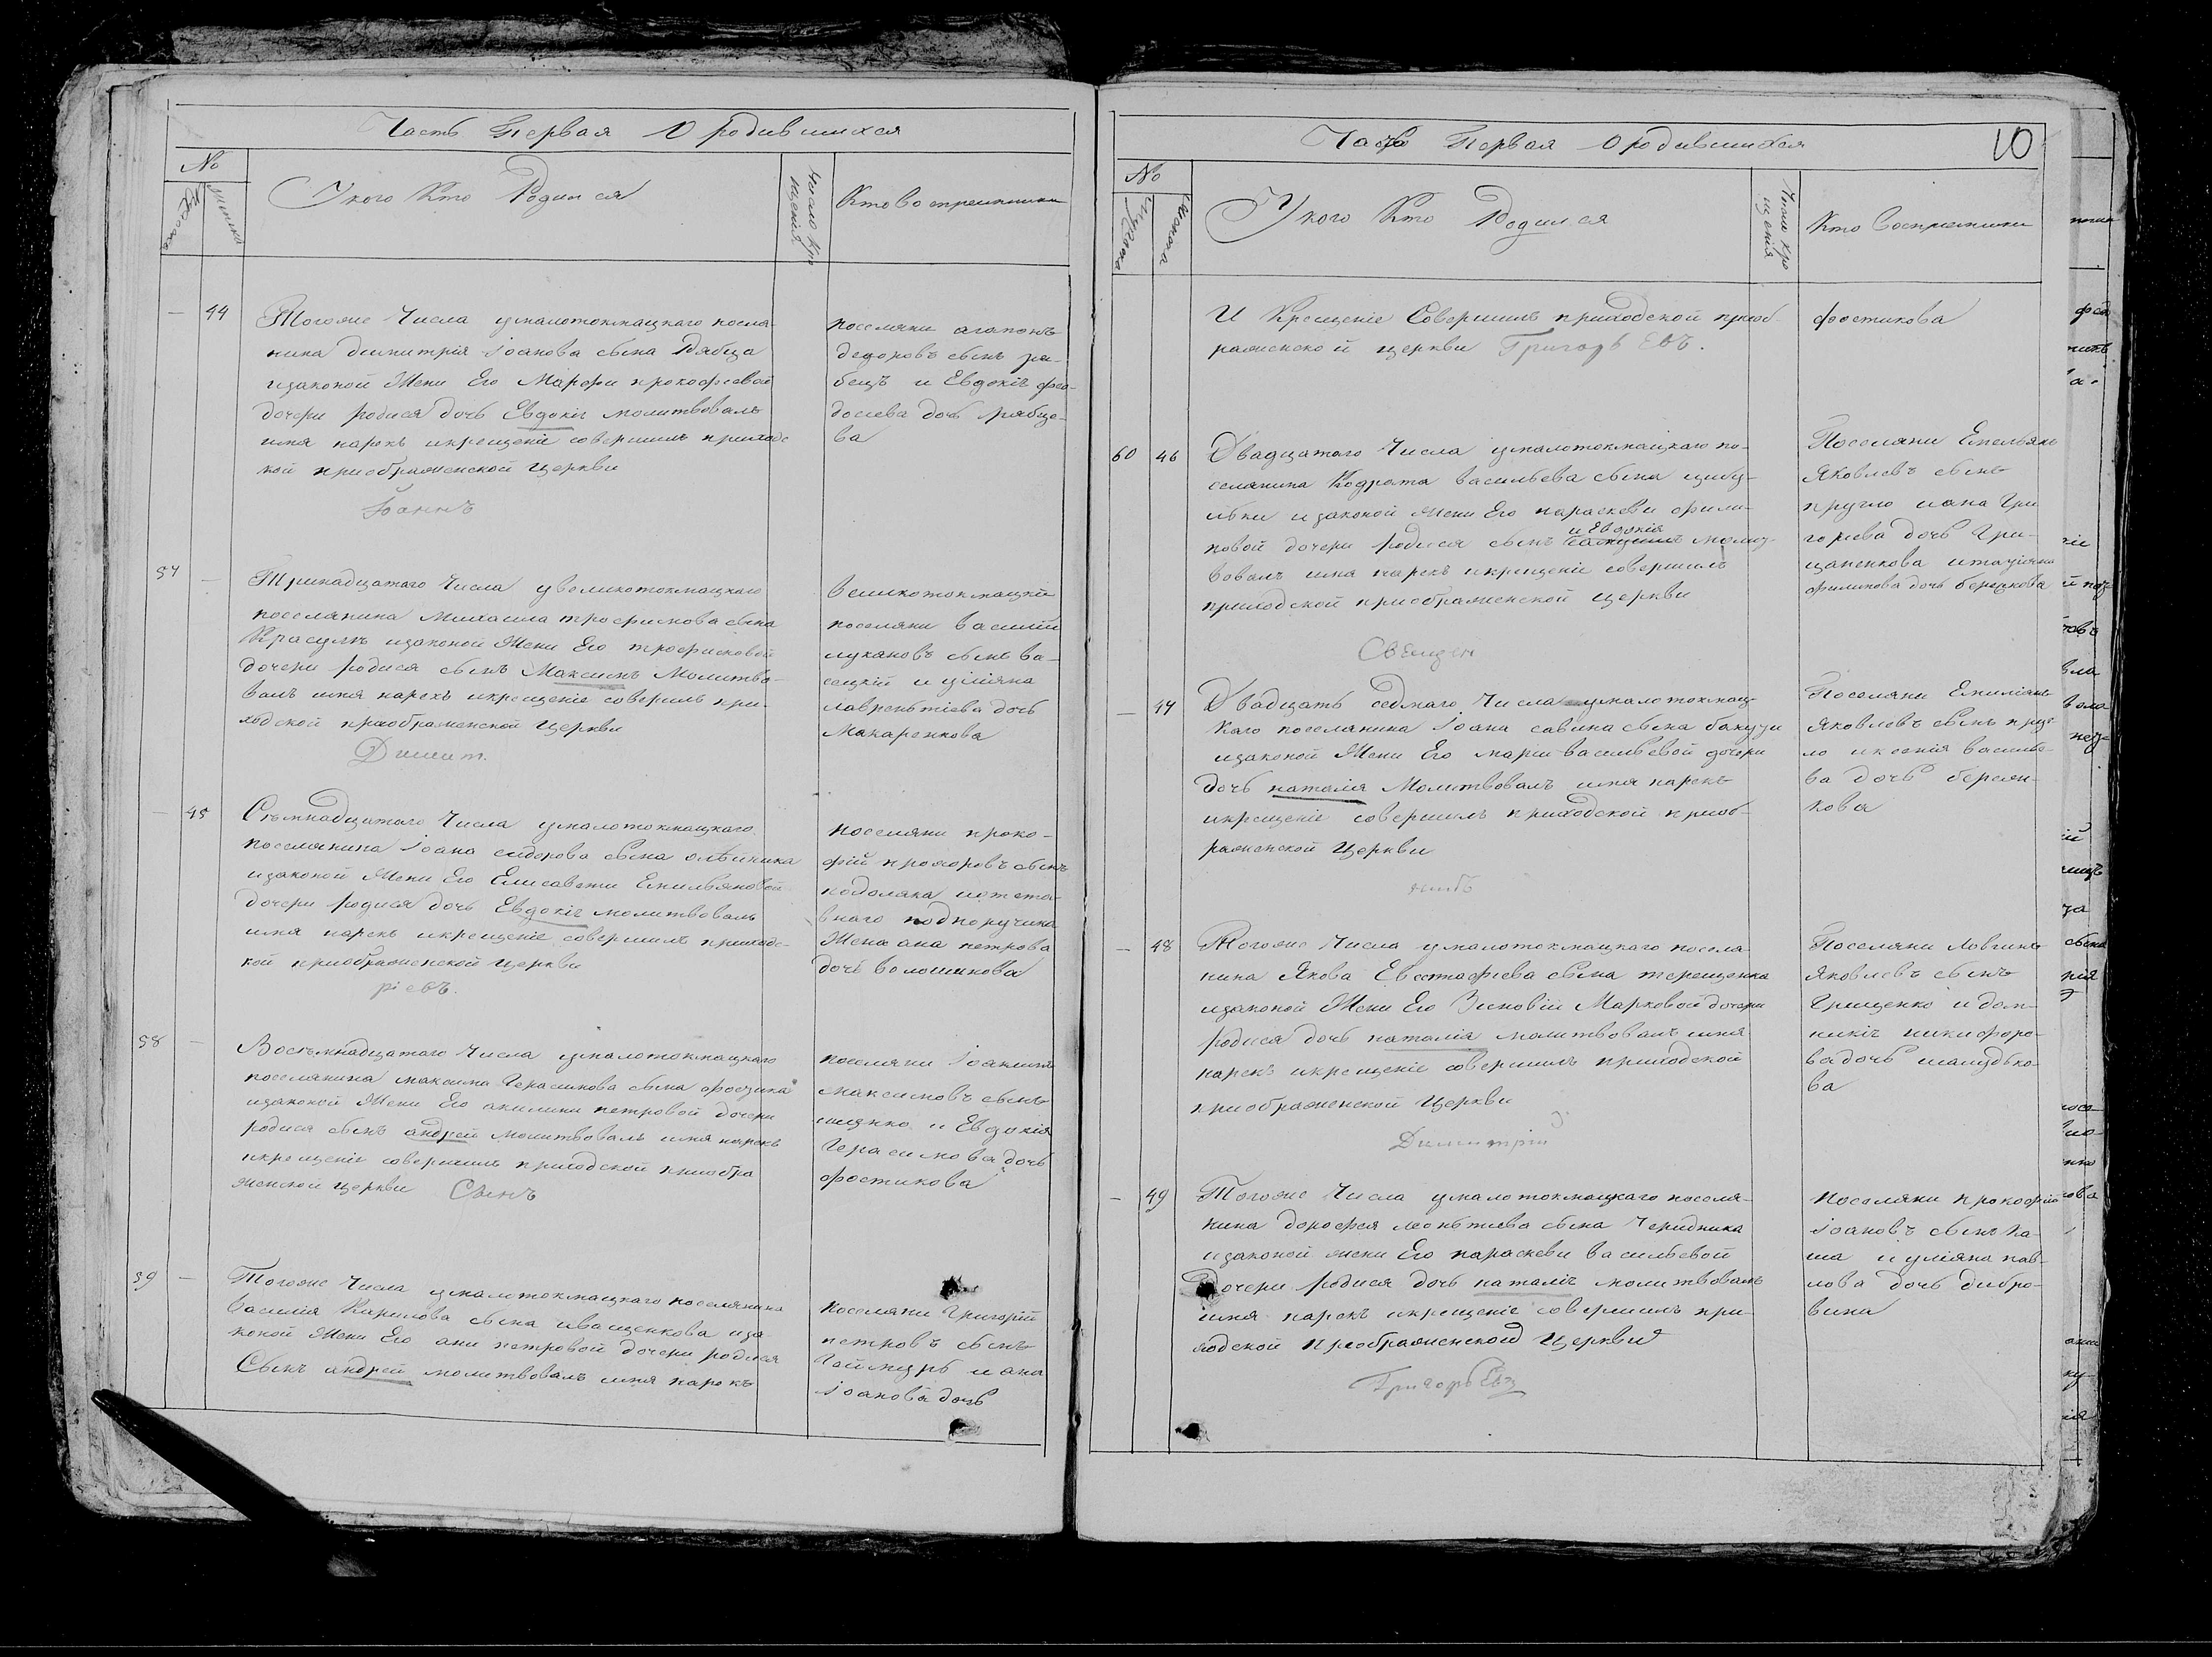 Часть Первая О родившихся
№
Мужска
Женска
У кого Кто Родился
Число кре
щенія
Кто Восприемники
— 44
Тогоже Числа умалотокмацкаго посла-
нина димитрія Іоанова сына Рябца
изаконой Жени Его Марфи прокофіевой
дочери родися дочь Евдокіѣ молитвовалъ
имя нарекъ икрещеніе совершилъ приходс
кой приображенской Церкви
Іоаннъ
поселяни агапонъ
дедоровъ сынъ ря-
бецъ и Евдокіѣ фео-
досиева дочь рябце-
ва
57 —
Тринадцатаго Числа увеликотокмацкаго
поселянина Михаила трофимова сына
Красулѣ изаконой Жени Его трофимовой
дочери родися сынъ Максимъ Молитво-
валъ имя нарекъ икрещеніе совершилъ при-
ходской приображенской Церкви
Димит.
великотокмацкіи
поселяни василій
лукановъ сынъ ва-
сецкій и уліяна
лаврентіева дочь
Макаренкова
— 45
Семнадцатаго Числа умалотокмацкаго
поселянина Іоана сидорова сына олѣйника
изаконой Жени Его Елисавети Емильяновой
дочери родися дочь Евдокіѣ молитвовалъ
имя нарекъ икрещеніе совершилъ приходс-
кой приображенской Церкви
ріевъ.
поселяни проко-
фій прохоровъ сынъ
подоляка иотста-
внаго подпоручика
Жена ана петрова
дочь волошинова
58 —
Восемнадцатаго Числа умалотокмацкаго
поселянина максима Герасимова сына фостика
изаконой Жени Его акилини петровой дочери
родися сынъ андрей молитвовалъ имя нарекъ
икрещеніе совершилъ приходской приобра
женской церкви Сынъ
поселяни Іоакимъ
максимовъ сынъ
ищенко и Евдокія
Герасимова дочь
фостикова
59 —
Тогоже Числа умалотокмацкаго поселянина
василія Карпова сына иващенкова иза
коной Жени Его ани петровой дочери родися
Сынъ андрей молитвовалъ имя нарекъ
поселяни Григорій
петровъ сынъ
Гаймуръ и ана
Іоанова дочь
Часть Первая О родившихся
10
№
Мужска
Женска
У кого Кто Родился
Число кре
щенія
Кто Восприемники
И Крещеніе Совершилъ приходской приоб-
раженской церкви Григорь Евъ.
фостикова
60 46
Двадцатаго Числа умалотокмацкаго по-
селянина Кодрата васильева сына цибу-
льки изаконой Жени Его параскеви фили-
и Евдокія
повой дочери родися сынъ молит-
вовалъ имя нарекъ икрещеніе совершилъ
приходской приображенской Церкви
Свещен
Поселяни Емельянъ
Яковлевъ сынъ
пругло иана Гри
горіева дочь Гри-
цаненкова итатіяна
филипова дочь берецкова
— 47
Двадцать седмаго Числа умалотокмац-
Каго поселянина Іоана савина сына бакузи
изаконой Жени Его маріи васильевой дочери
дочь наталія Молитвовалъ имя нарекъ
икрещеніе совершилъ приходской приоб-
раженской Церкви
никъ
Поселяни Емиліянъ
Яковлевъ сынъ пруг
ло иксенія василье-
ва дочь берези-
кова
— 48
Тогоже Числа умалотокмацкаго поселя-
нина Якова Евстафіева сына терещенка
изаконой Жени Его Зиновіи Марковой дочери
родися дочь наталія молитвовалъ имя
нарекъ икрещеніе совершилъ приходской
приображенской Церкви
Димитрій
Поселяни Логинъ
Яковлевъ сынъ
Грищенко и дом-
никіѣ никифоро-
ва дочь шамудько-
ва
— 49
Тогоже Числа умалотокмацкаго поселя-
нина дорофея леонтиева сына Чередника
изаконой жени Его параскеви васильевой
Дочери родися дочь наталіѣ молитвовалъ
имя нарекъ икрещеніе совершилъ при-
ходской Преображенской Церкви
Григорь Евъ
поселяни прокофій
Іоановъ сынъ ка-
ша и уліяна пав-
лова дочь дибро-
вина